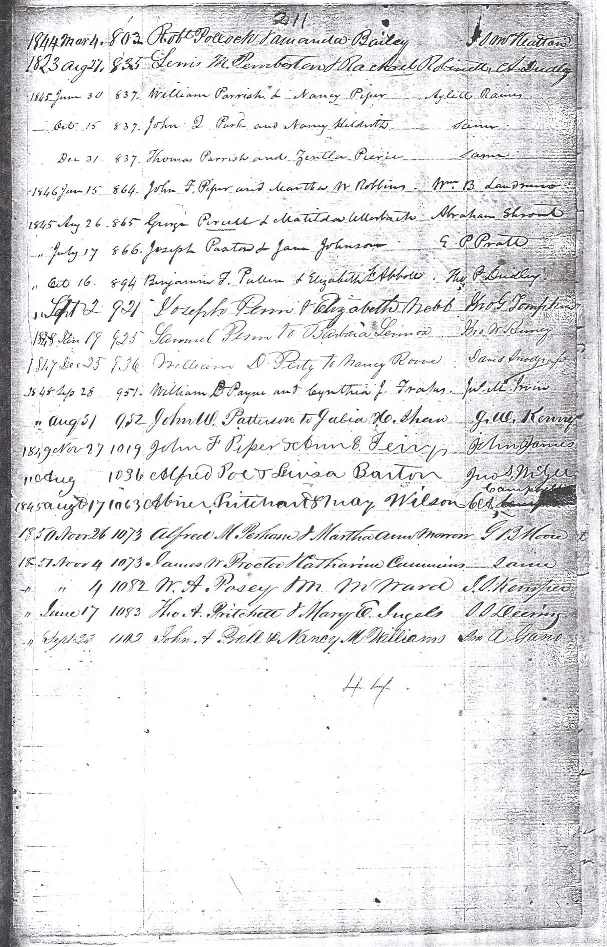 211
1844 Mar 4. 803 Robt Pollock & Amanda Bailey
1823 Aug 27, 835 Lewis M. Pemberton & Rachael Robinett, Dudley
1845 June 30 837. William Parrish & Nancy Piper Aylett Raines
Oct 15 837. John Park and Nancy Hildreth same
Dec 31 837. Thomas Parrish and Zerilla Pierce same
1846 Jan 15 864. John F. Piper and Martha W Robbins. Wm B. Landrum
1845 Aug 26 865 George Percell & Matilda Utterback Abraham Shrout
" July 17 866. Joseph Paxton & Jane Johnson E P Pratt
" Oct 16. 894 Benjamin F. Pullen & Elizabeth Abbott. Tho P. Dudley
" Sept 2 921 Joseph Penn & Elizabeth Webb Jno G Tompkins
1848 19 925 Samuel Penn to Barbara Lennox Kenney
1847 Dec 23 William D Perty to Nancy Rowe Davis Snodgrass
1848 Sep 28 951. William D Payne and Cynthia J. Jul. M. Irwin
" Aug 31 952 John W. Patterson to Julia H. Shaw G. W. Kenney
1849 Nov 27 1019 John F Piper & Ann E. Terry John James
Aug 1036 Alfred Poe & Levisa Barton Jno S. McGee
1845 Aug 17 1063 Abner Pritchart & May Wilson
1850 Nov 26 1073 Alfred M. Perham & Martha Ann Morrow G B Moore
1851 Nov 4 1073 James W Procter Katharine Cummins same
" " 4 1082 W. A. Posey & M. M Ward J. S. Kemper
" June 17 1083 Tho. A. Pritchett & Mary E. Ingels S S Deering
" Sept 23 1102 John A Ball & Nancy M Williams Jno A Gano
44